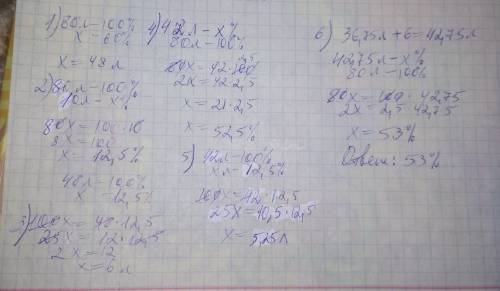 1) 80л-100%
х - 60%
х = 48 л
2) 80л-100%
10л - х%
80х = 100·10
8х = 100
х = 12,5%
48л-100%
х - 12,5%
3) 100х = 48·12,5
25х = 12·12,5
2х = 12
х = 6 л
4) 42л - х%
80л-100%
2х = 42·2,5
х = 21·2,5
х = 52,5%
5) 42л-100%
хл - 12,5%
100х = 42·12,5
25х = 10,5·12,5
х = 5,25л
6) 36,75л + 6 = 42,75л
42,75л - х%
80л-100%
80х = 100·42,75
2х = 2,5·42,75
х = 53%
Ответ: 53%